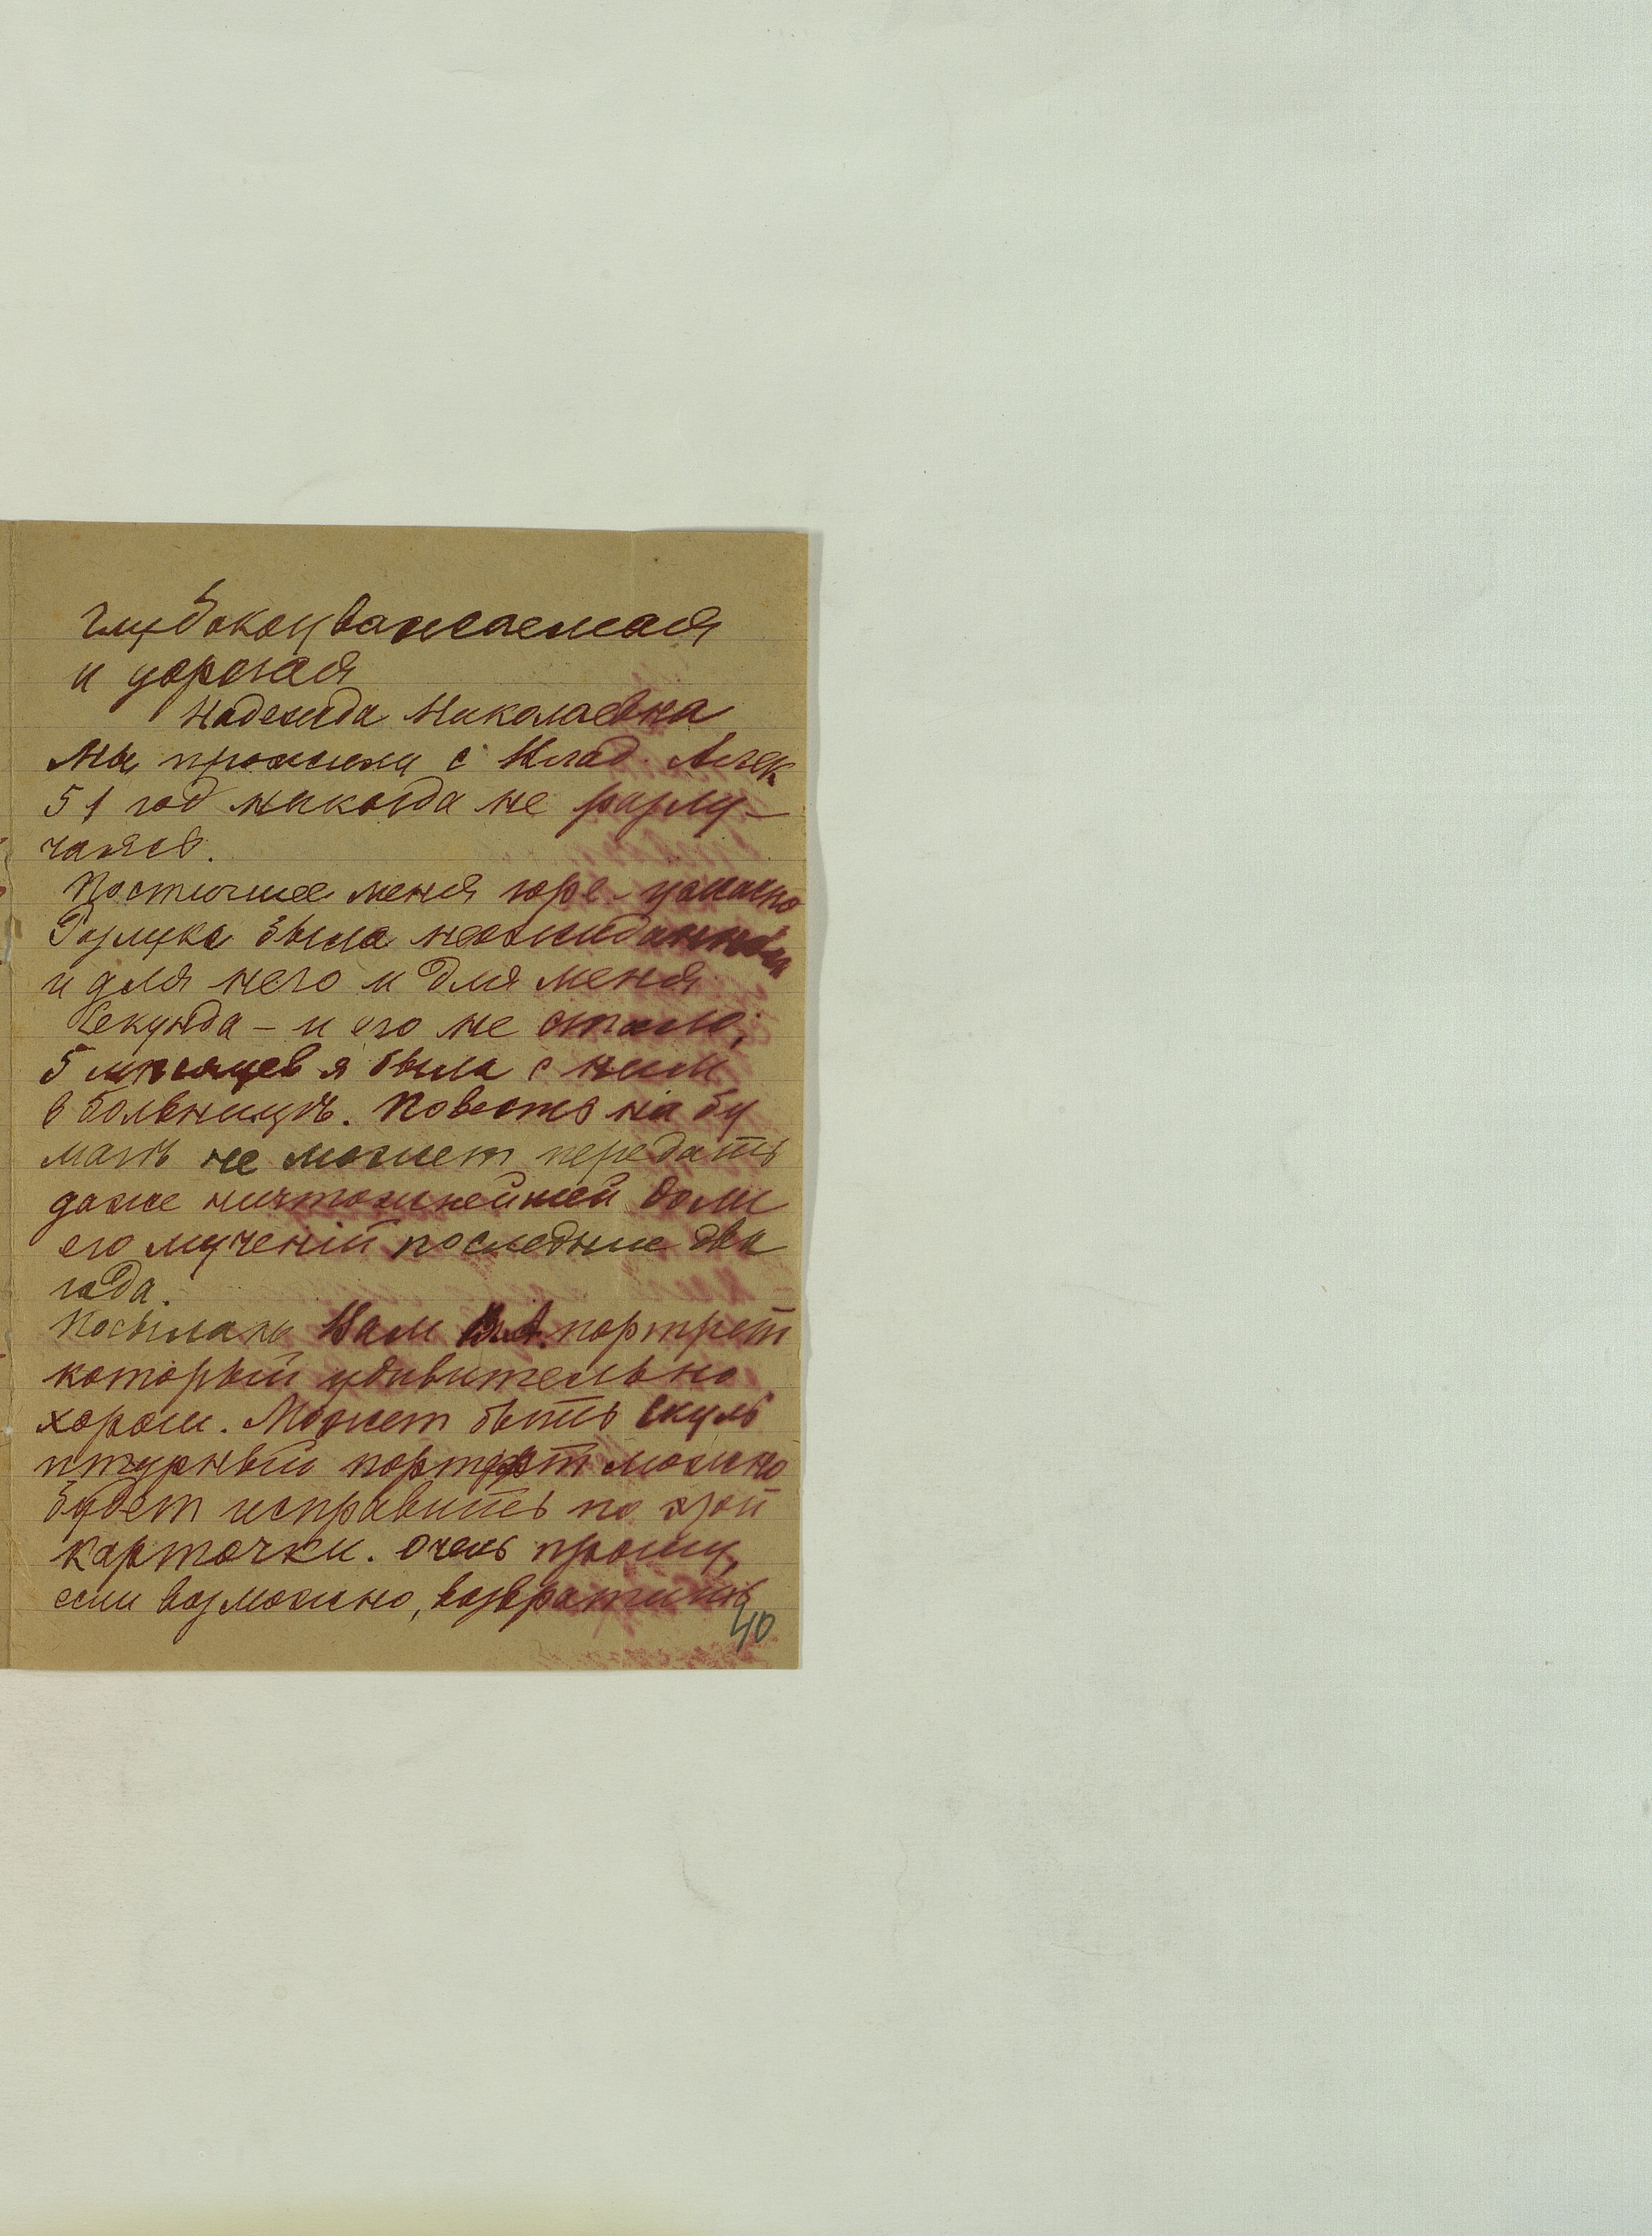 Глубокоуважаемая
и дорогая
Надежда Николаевна
Мы прожили с Влад. Алек
51 год никогда не разлу-
чаясь.
Постигшее меня горе - ужасно
Разлука была неожиданной
и для него и для меня
Секунда - и его не стало;
5 месяцев я была с ним
в больницѣ. Повесть на бу
магѣ не может передать
даже ничтожнейшей доли
его мученiй последние два
года.
Посылаю Вам В.А. портрет
который удивительно
хорош. Может быть скуль
птурный портрет можно
будет исправить по этой
карточки. Очень прошу,
если возможно, возвратить
40